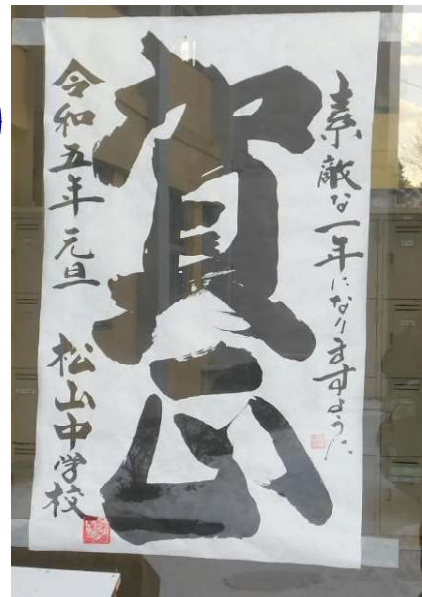 素敵な一年になりますように
賀正
令和五年 元旦 松山中学校